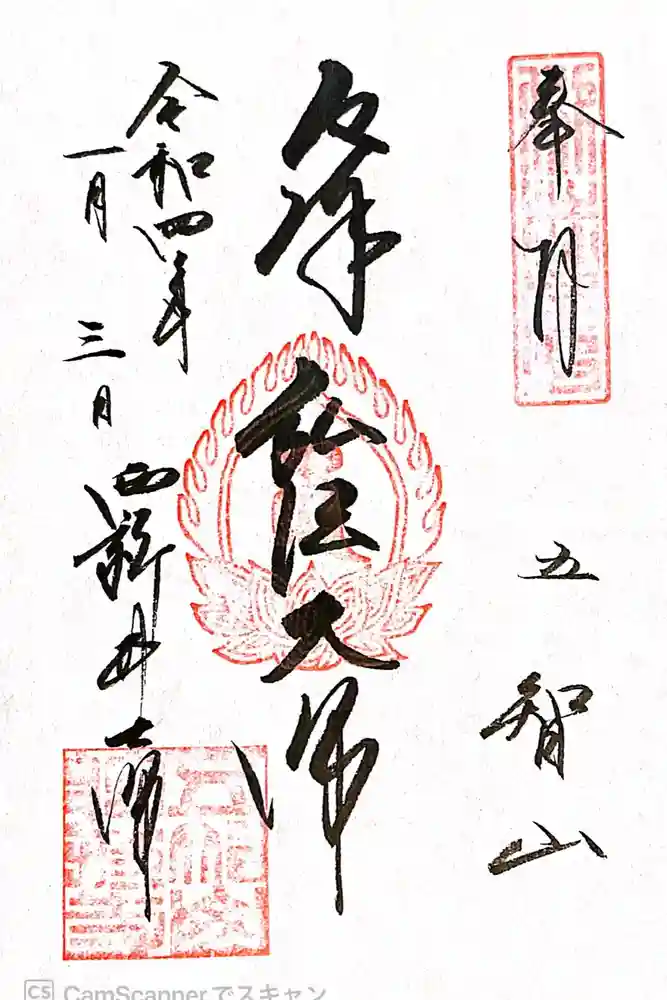 奉拝 五智山
弘法大師
令和四年
一月三日 西新井大師
CS CamScannerでスキャン